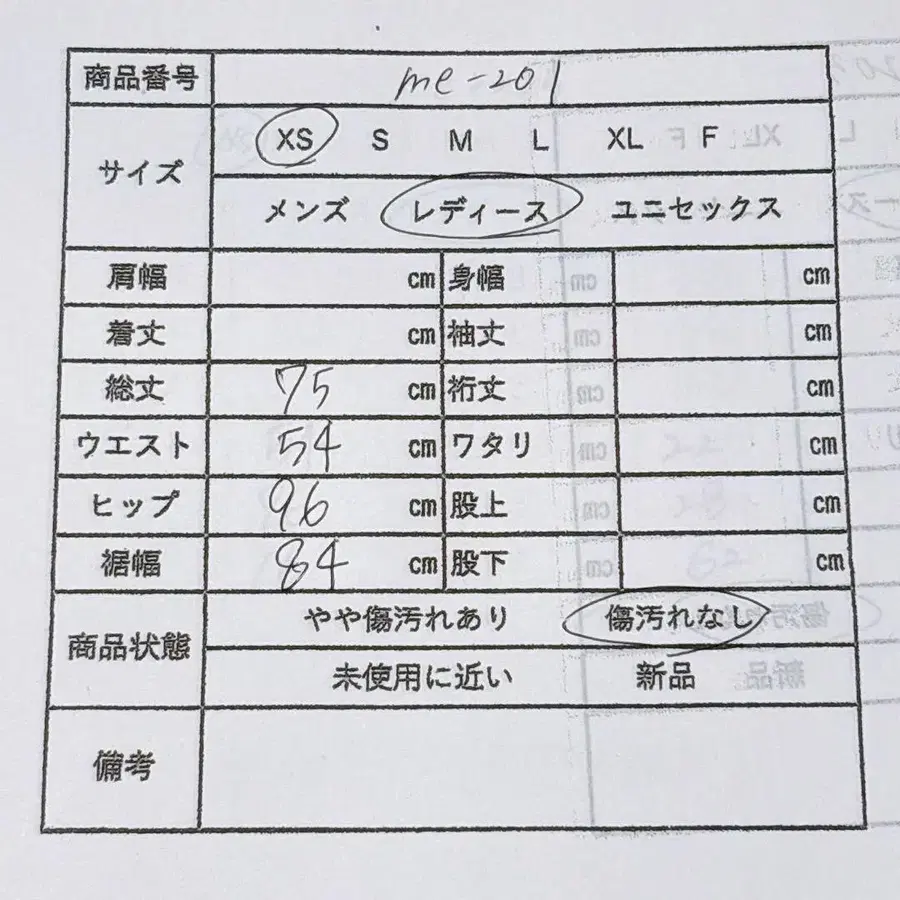 商品番号 me-201
サイズ XS S M L XL F
メンズ レディース ユニセックス
肩幅 cm 身幅 cm
着丈 cm 袖丈 cm
総丈 75 cm 裄丈 cm
ウエスト 54 cm ワタリ cm
ヒップ 96 cm 股上 cm
裾幅 84 cm 股下 cm
商品状態 やや傷汚れあり 傷汚れなし
未使用に近い 新品
備考